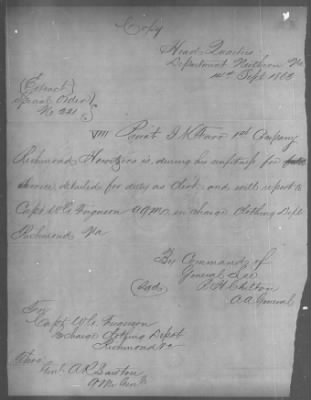 Copy
Head Quarters
Department Northern Va
14th Sept 1863
(Extract)
Special Orders
No 221
VIII Privat J. W. 1st Company
Richmond Howitzers is, during his unfitness for
service, detailed for duty as Clerk and will report to
Capt W G Ferguson A Q M in charge Clothing Depot
Richmond Va
By Command of
General Lee
R H Chilton
A. A. General
To
Capt W G Ferguson
In Charge Clothing Depot
Richmond Va
Thro
Genl A R Lawton